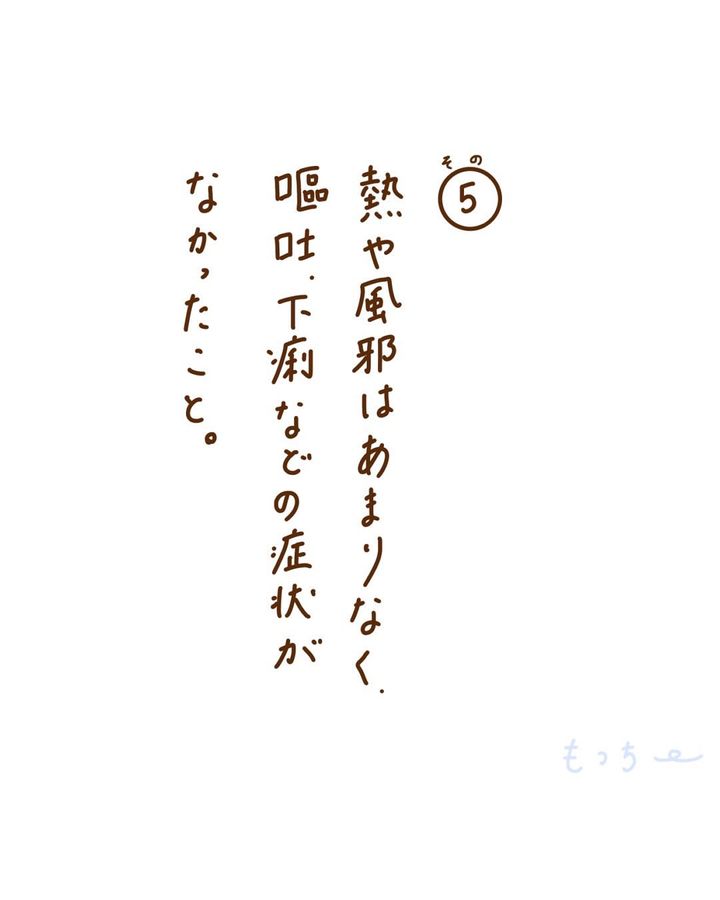 その
⑤
熱や風邪はあまりなく、
嘔吐、下痢などの症状が
なかったこと。
もっちー